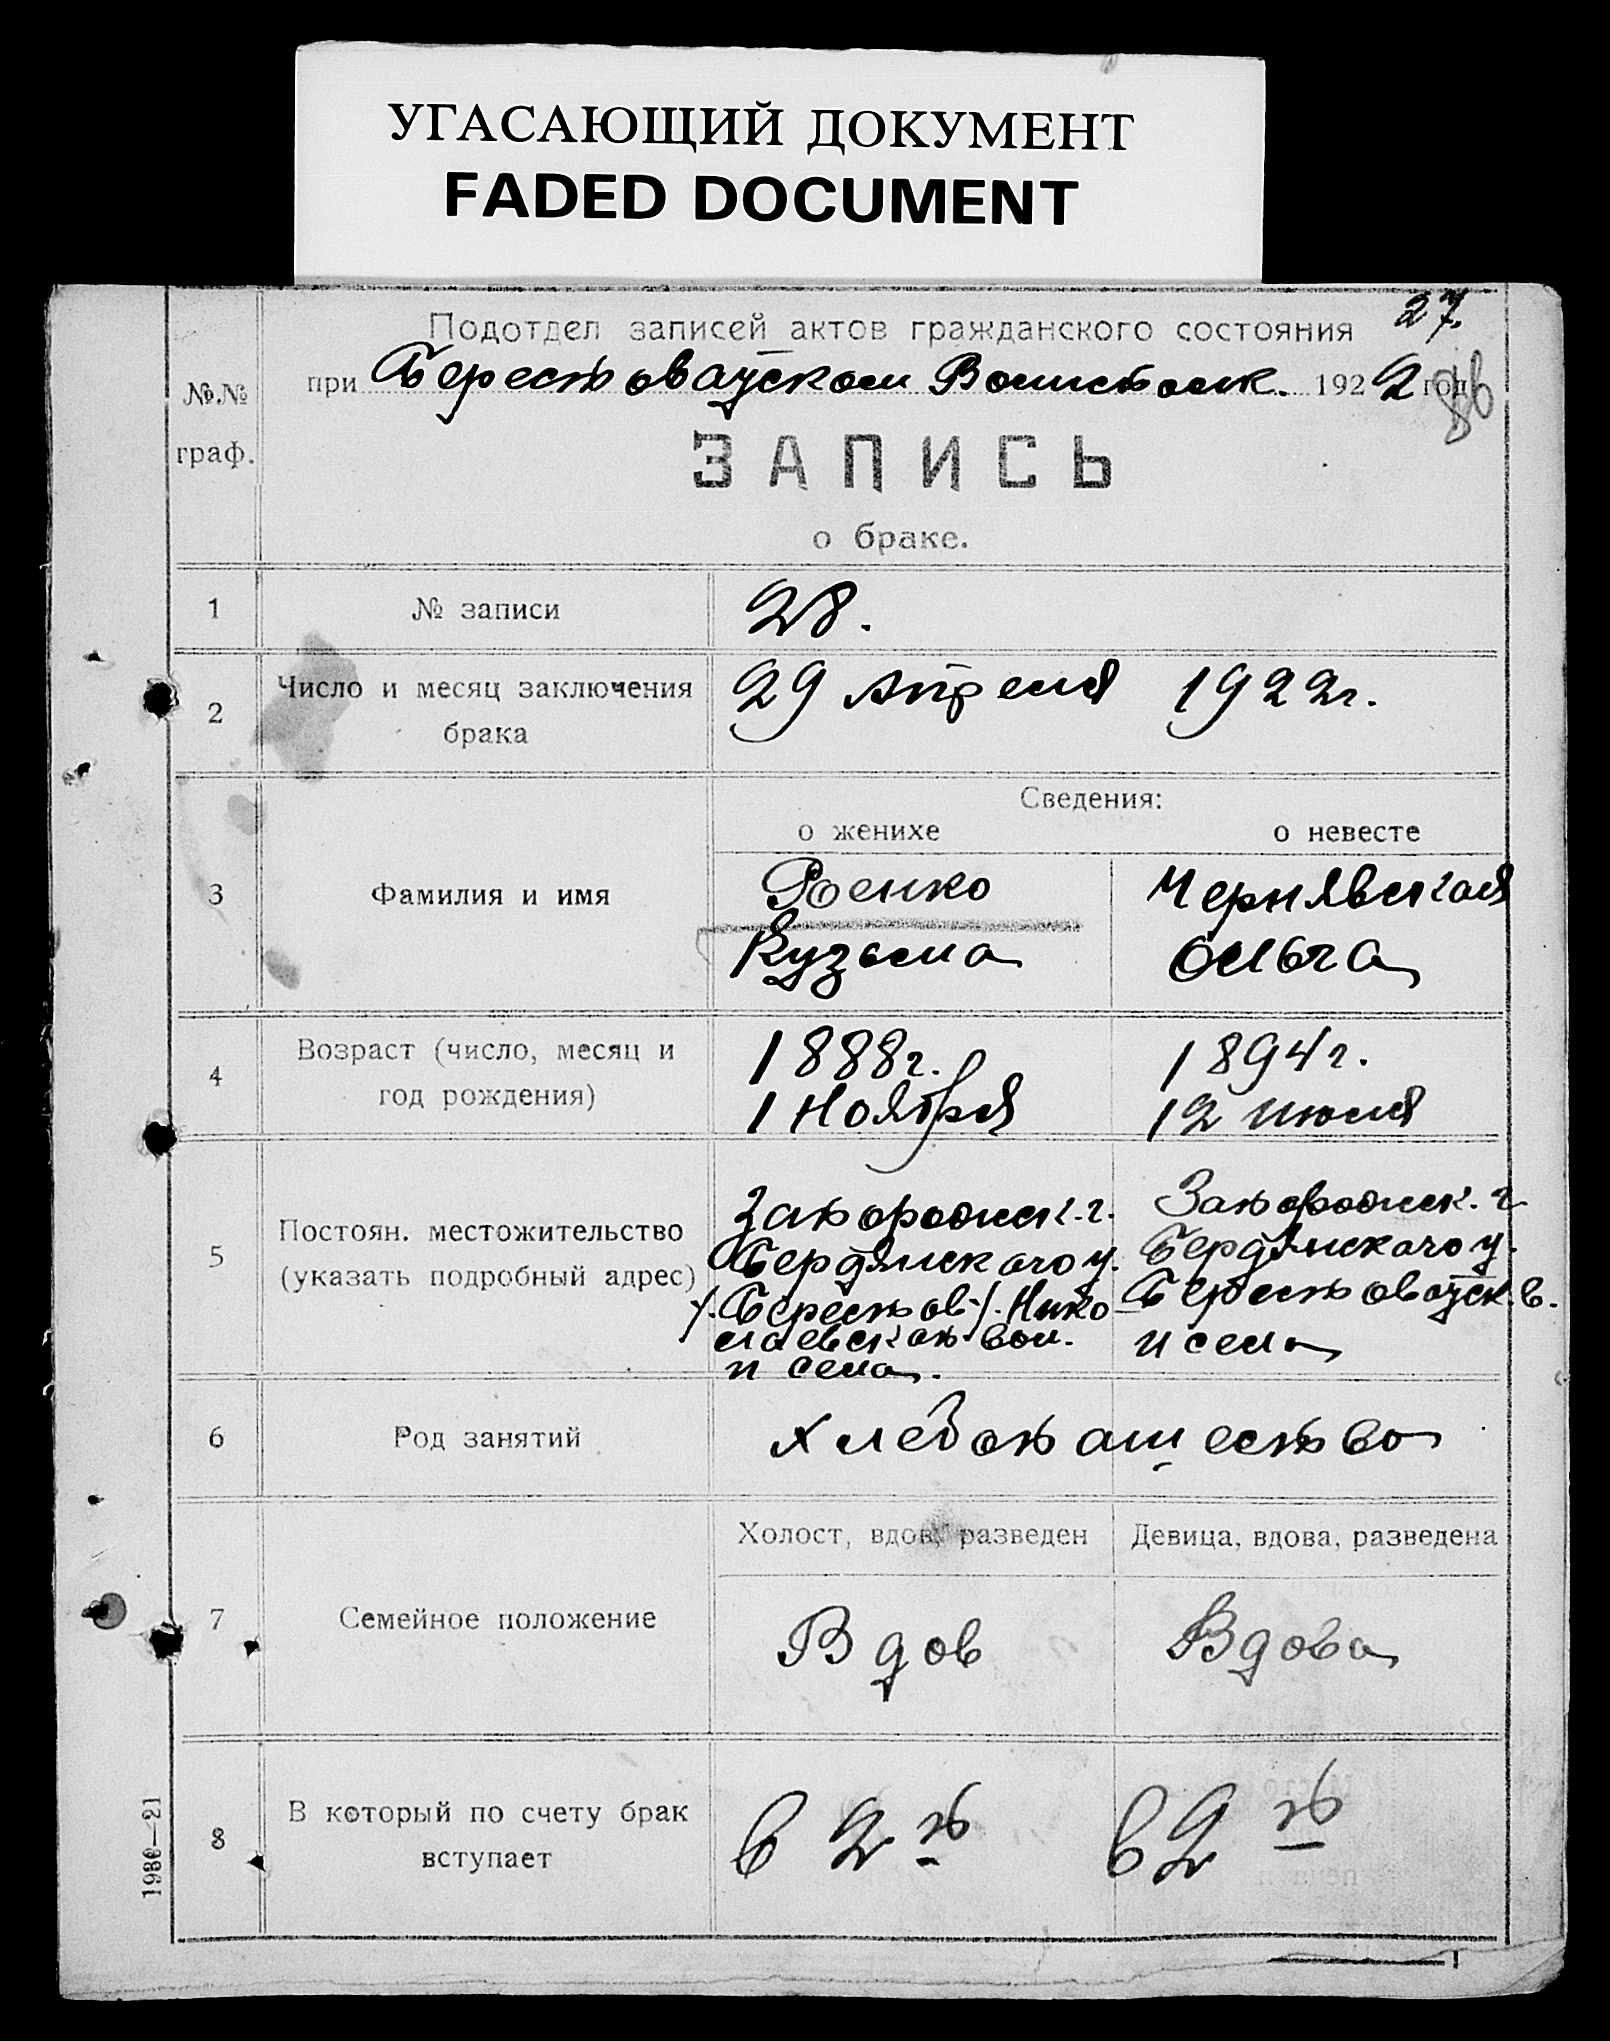 УГАСАЮЩИЙ ДОКУМЕНТ
FADED DOCUMENT
27.
Подотдел записей актов гражданского состояния
при Берестоватском Волисполк. 1922 год
86
№№
граф.
ЗАПИСЬ
о браке.
1 № записи 28.
2 Число и месяц заключения брака 29 Апреля 1922 г.
Сведения:
о женихе о невесте
3 Фамилия и имя
Чернявская
Кузьма Ольга
4 Возраст (число, месяц и год рождения)
1888 г. 1894 г.
1 Ноября 12 Июля
5 Постоян. местожительство (указать подробный адрес)
Запорожск. г. Запорожск. г.
Бердянского у. Бердянского у.
Берестов Нико Берестоватск. в.
лаевской вол. и села
и села.
6 Род занятий Хлебопашество
Холост, вдов, разведен Девица, вдова, разведена
7 Семейное положение Вдов Вдова
8 В который по счету брак вступает в 2й в 2й
1980—21
1